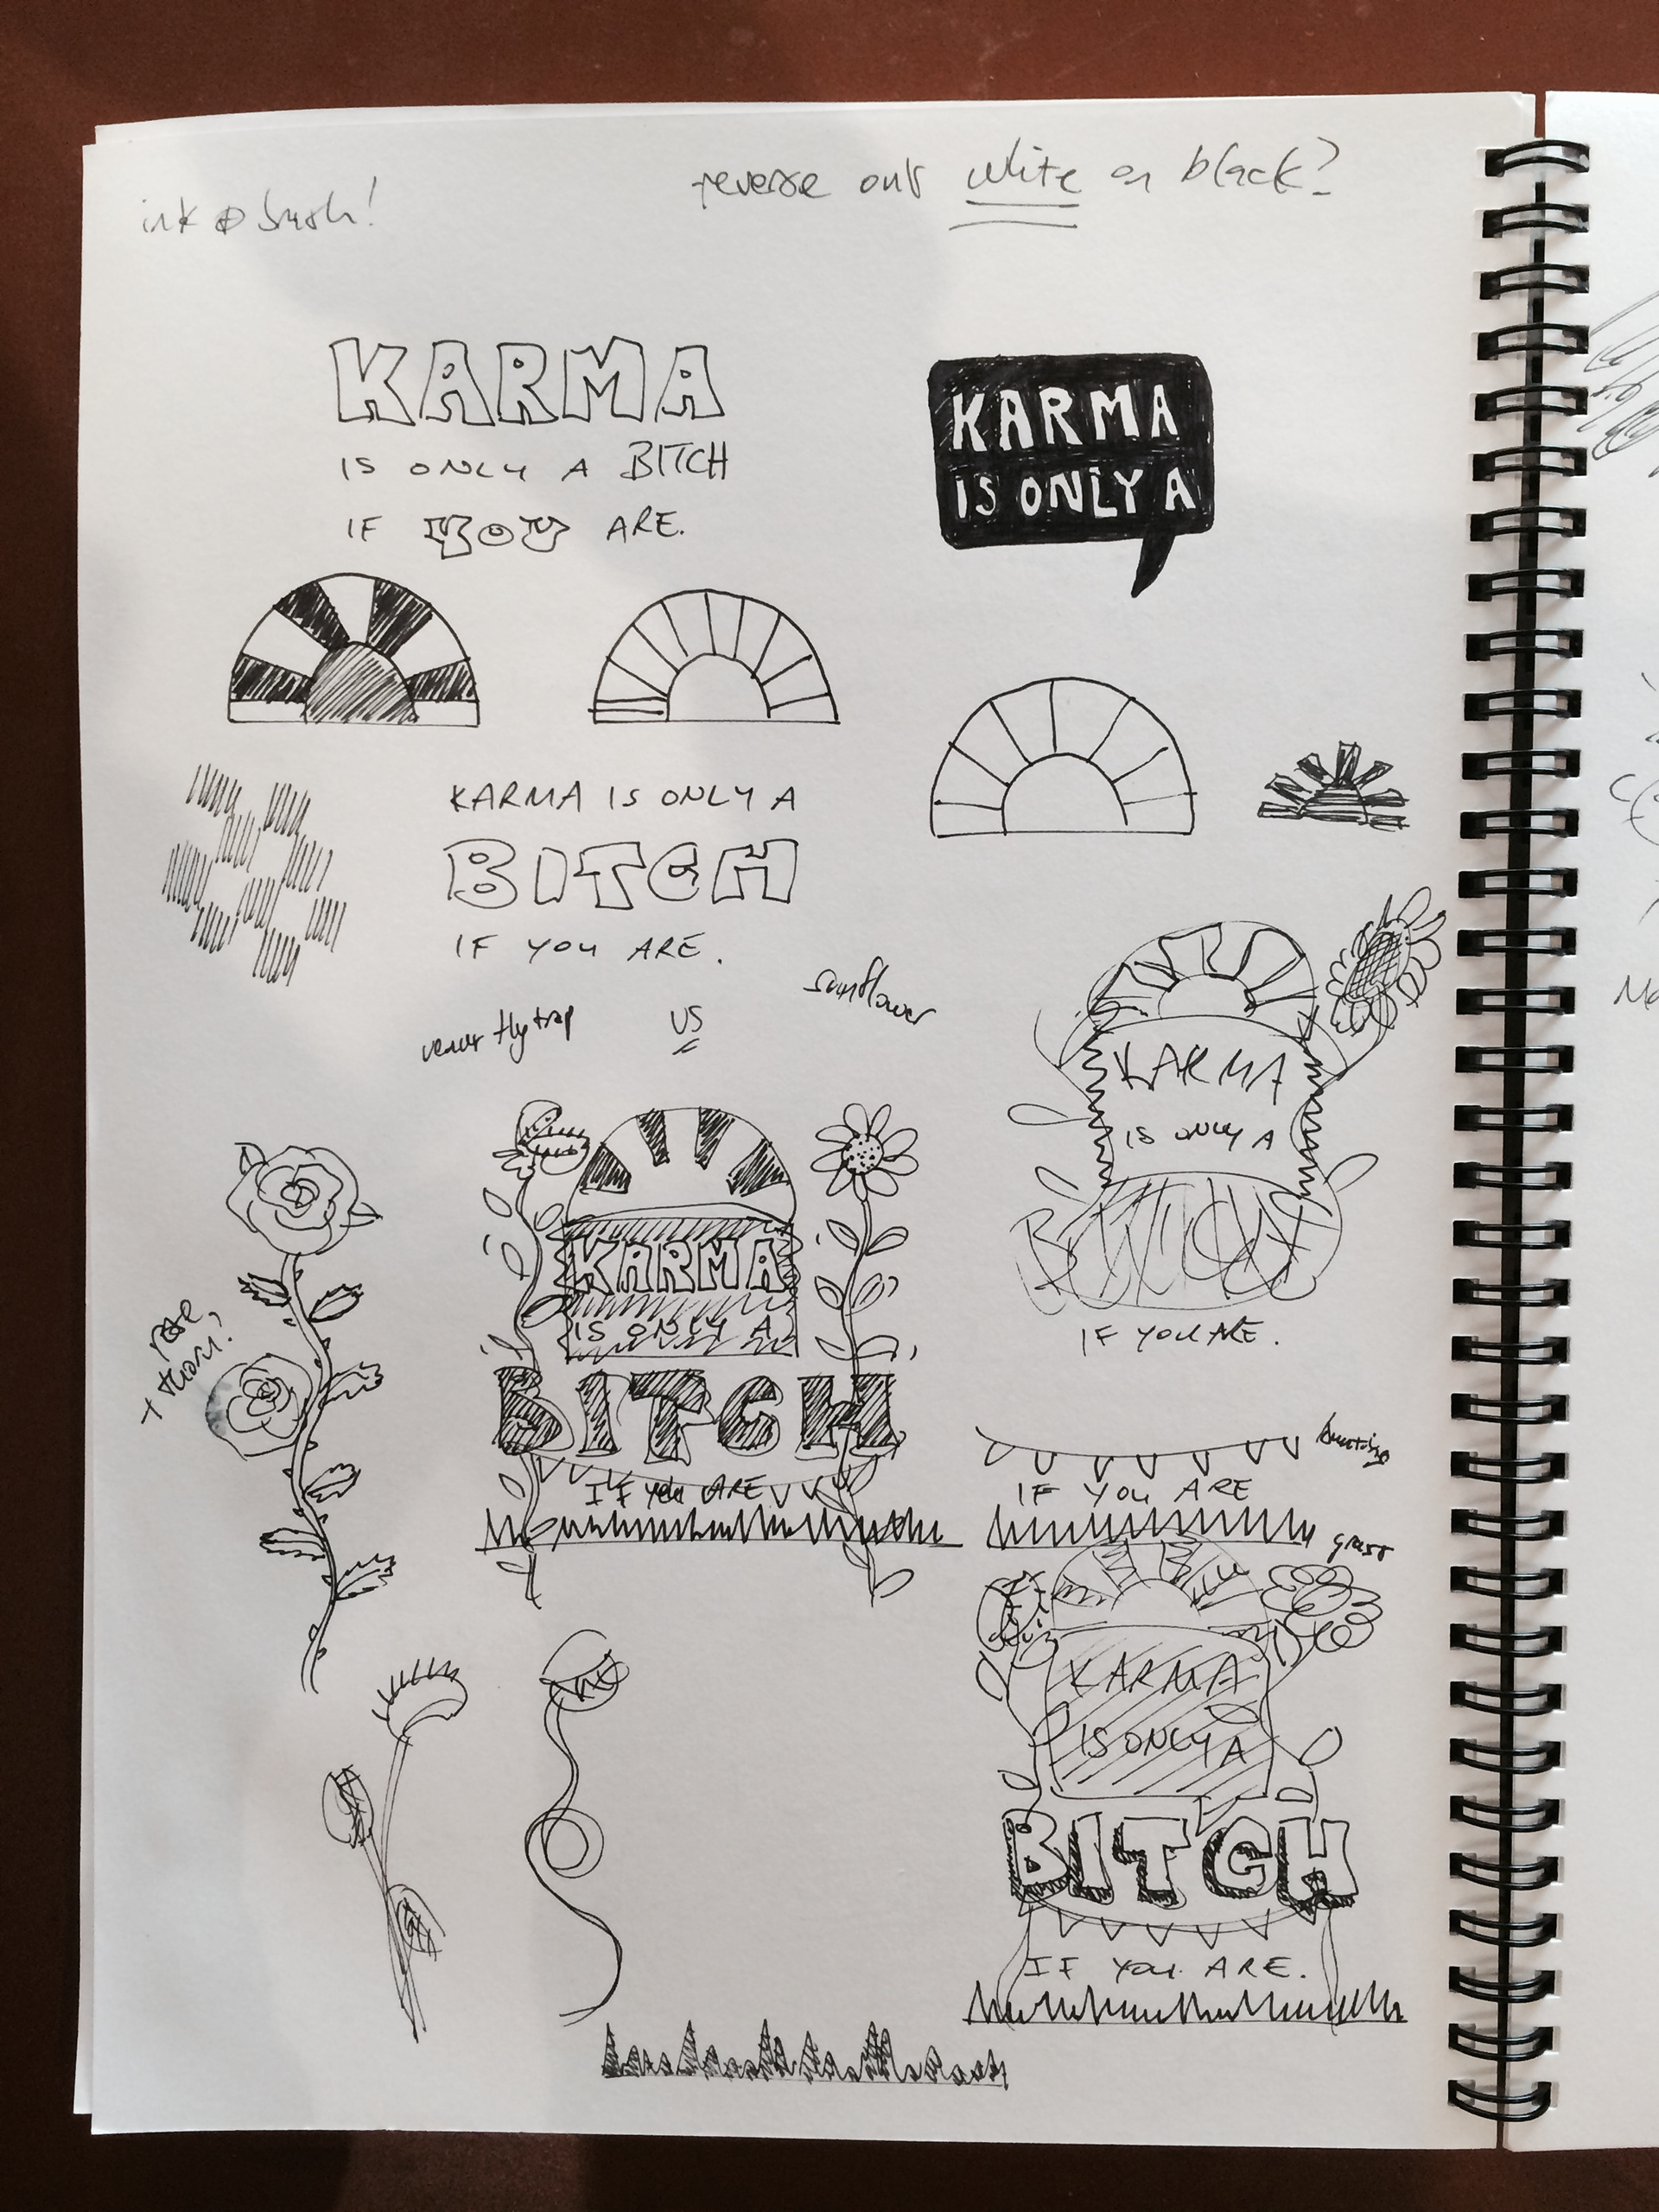 reverse out white on black?
ink & brush!
KARMA
IS ONLY A BITCH
IF YOU ARE.
KARMA
IS ONLY A
KARMA IS ONLY A
BITCH
IF YOU ARE.
venus flytrap
VS
sunflower
KARMA
IS ONLY A
BITCH
IF YOU ARE.
KARMA
IS ONLY A
BITCH
IF YOU ARE
rose
+ thorn?
bunting
IF YOU ARE
grass
KARMA
IS ONLY A
BITCH
IF YOU ARE.